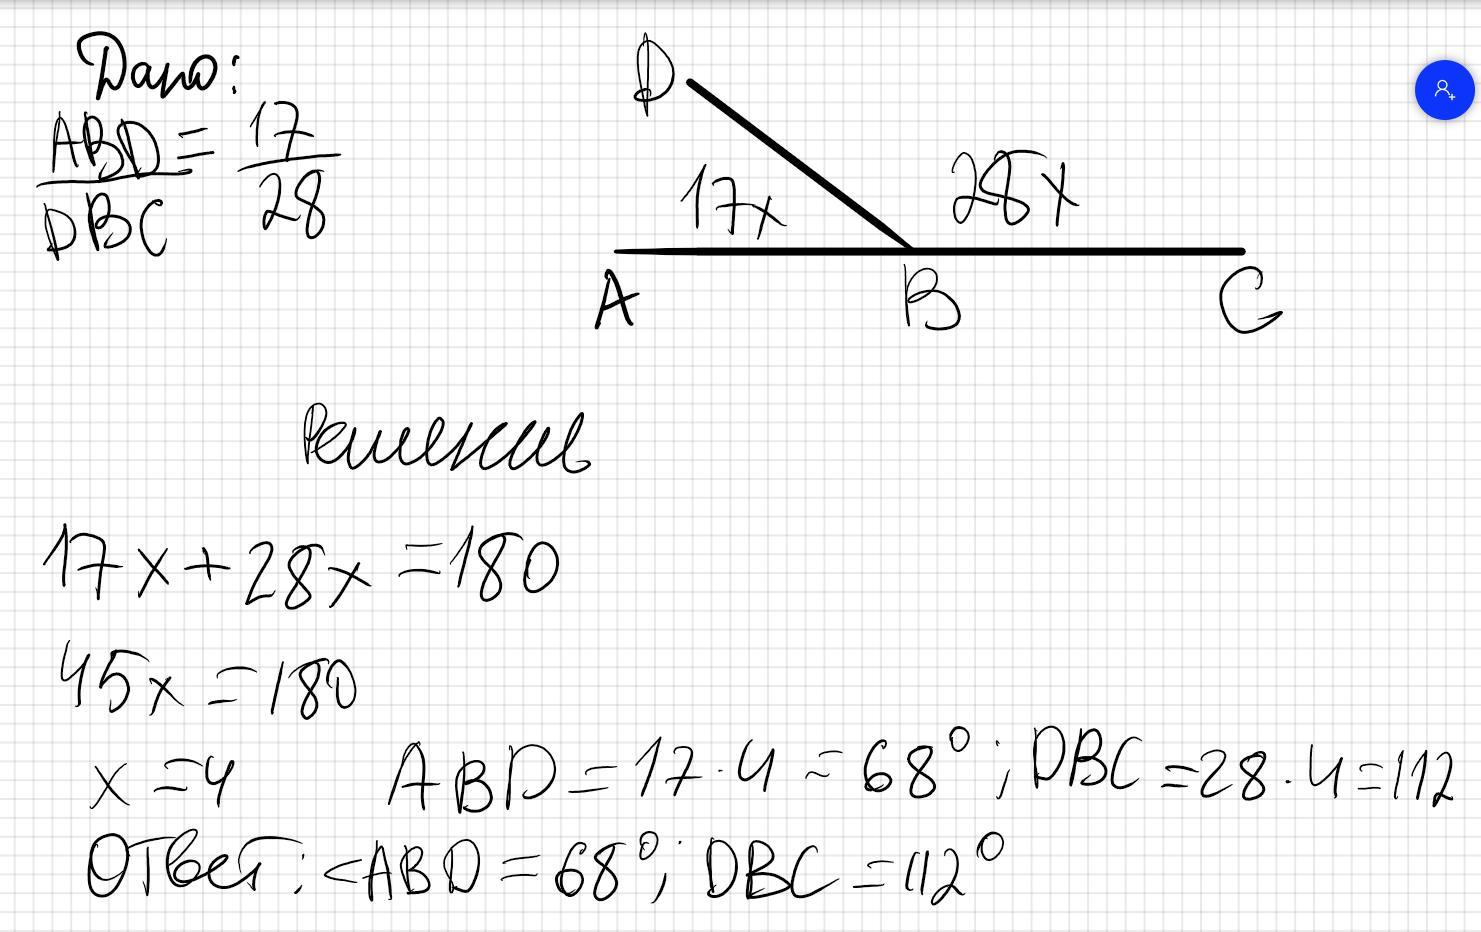 Дано:
ABD = 17
DBC 28
D
17x 28x
A B C
Решение
17x + 28x = 180
45x = 180
x = 4 ABD = 17 · 4 = 68°; DBC = 28 · 4 = 112
Ответ: <ABD = 68°; DBC = 112°